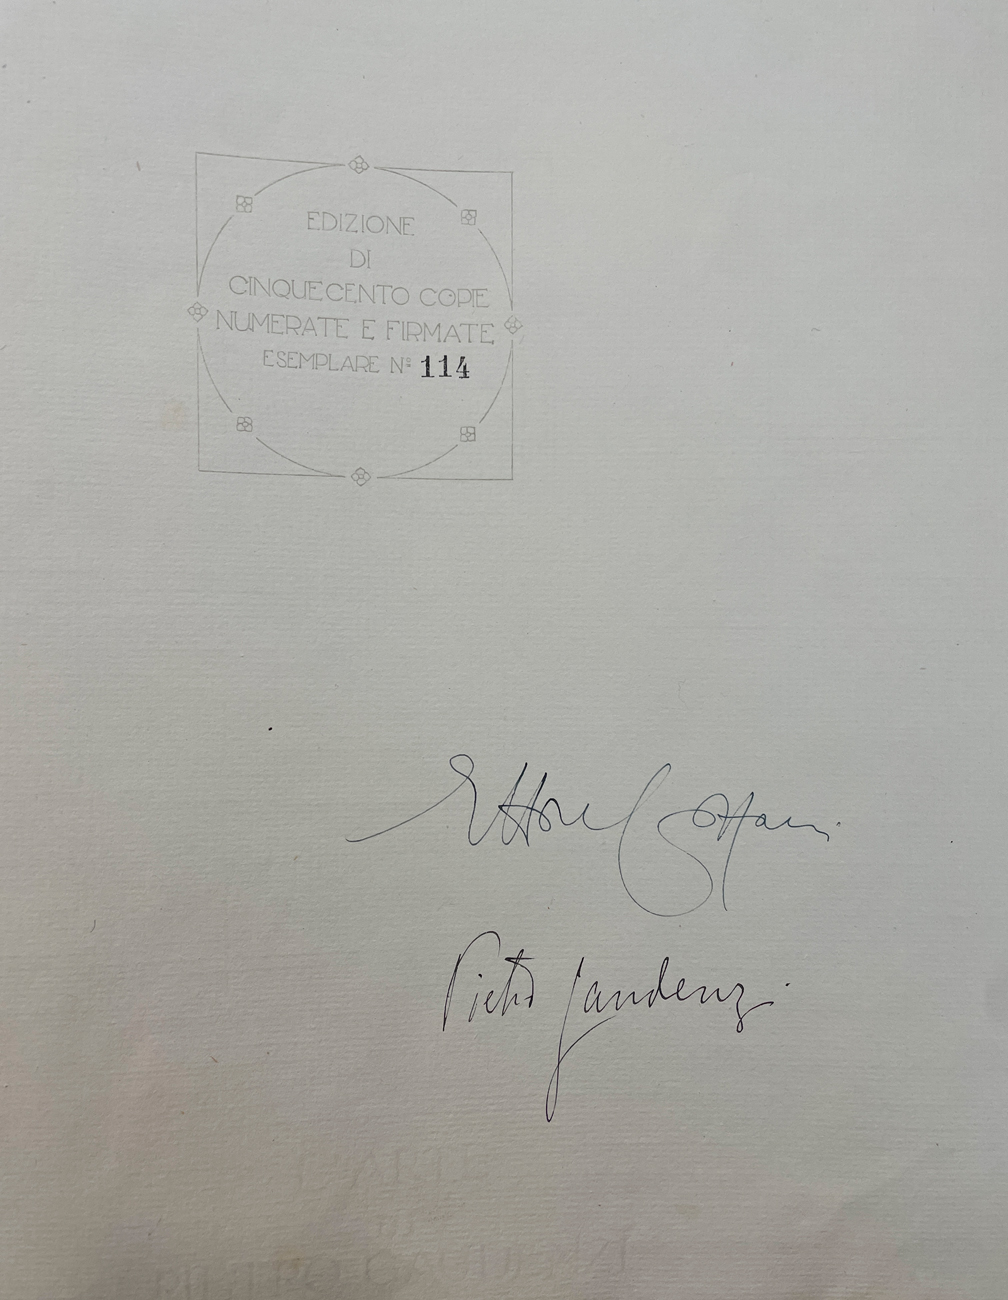 EDIZIONE
DI
CINQUECENTO COPIE
NUMERATE E FIRMATE
ESEMPLARE Nº 114
Ettore Cozzani
Pietro Gaudenzi